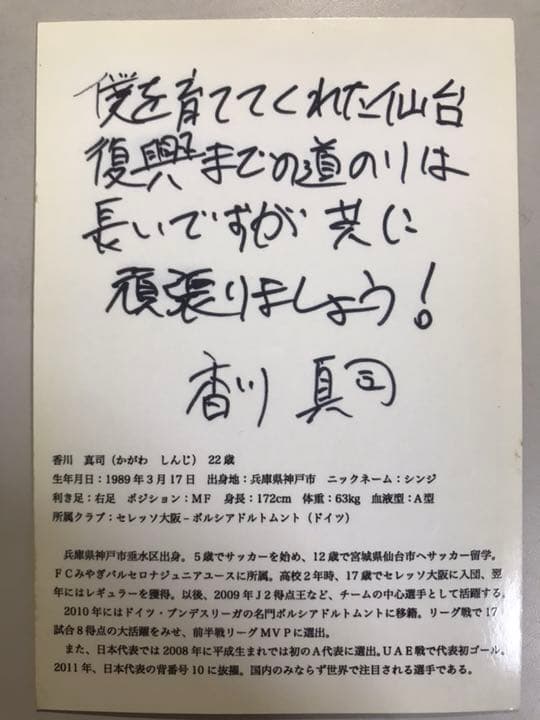 僕を育ててくれた仙台
復興までの道のりは
長いですが 共に
頑張りましょう!
香川 真司
香川 真司(かがわ しんじ) 22歳
生年月日:1989年3月17日 出身地:兵庫県神戸市 ニックネーム:シンジ
利き足:右足 ポジション:MF 身長:172cm 体重:63kg 血液型:A型
所属クラブ:セレッソ大阪-ボルシアドルトムント(ドイツ)
兵庫県神戸市垂水区出身。5歳でサッカーを始め、12歳で宮城県仙台市へサッカー留学。
FCみやぎバルセロナジュニアユースに所属。高校2年時、17歳でセレッソ大阪に入団、翌
年にはレギュラーを獲得。以後、2009年J2得点王など、チームの中心選手として活躍する。
2010年にはドイツ・ブンデスリーガの名門ボルシアドルトムントに移籍。リーグ戦で17
試合8得点の大活躍をみせ、前半戦リーグMVPに選出。
また、日本代表では2008年に平成生まれでは初のA代表に選出。UAE戦で代表初ゴール。
2011年、日本代表の背番号10に抜擢。国内のみならず世界で注目される選手である。